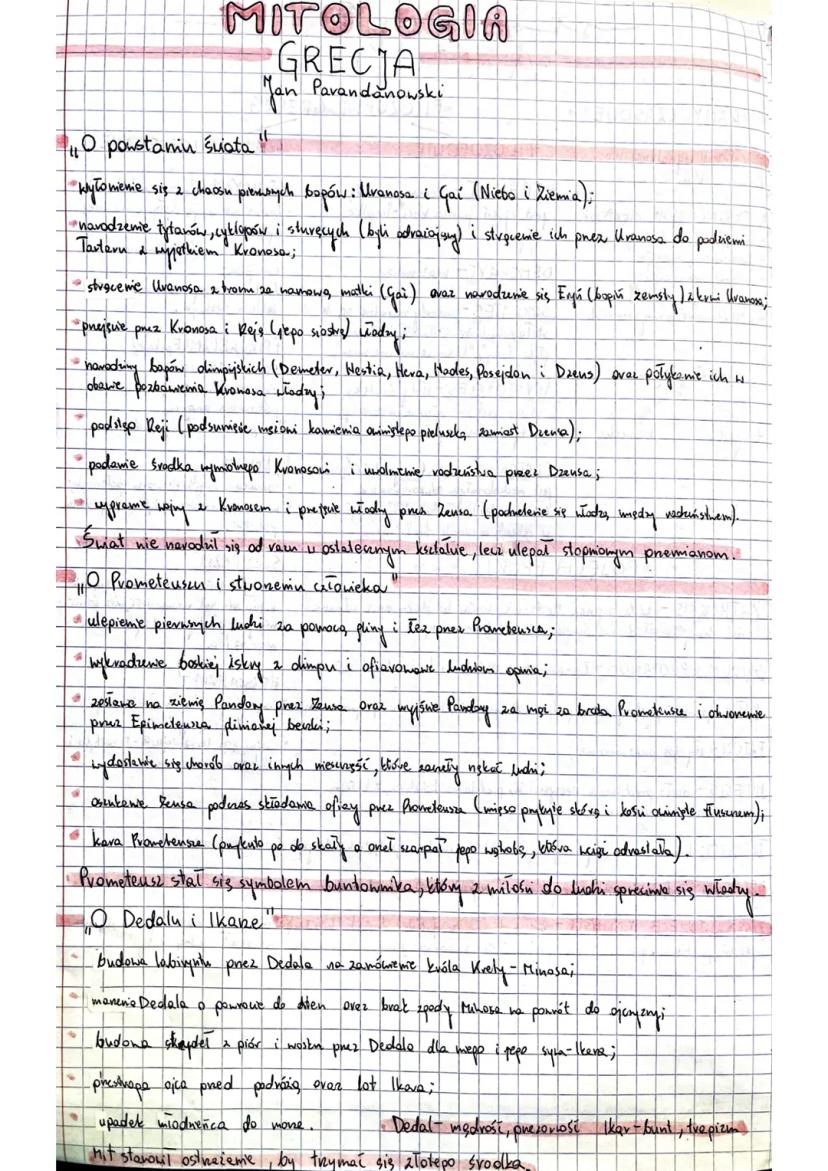 MITOLOGIA
GRECJA
Jan Parandanowski
„O powstaniu świata"
wyłonienie się z chaosu pierwszych bogów: Uranosa i Gai (Niebo i Ziemia);
narodzenie tytanów, cyklopów i sturęcych (byli odrażający) i strącenie ich przez Uranosa do podziemi
Tartaru z wyjątkiem Kronosa;
strącenie Uranosa z tronu za namową matki (Gai) oraz narodzenie się Eryń (bogiń zemsty) z krwi Uranosa;
przejęcie przez Kronosa i Reję (jego siostrę) władzy;
narodziny bogów olimpijskich (Demeter, Hestia, Hera, Hades, Posejdon i Dzeus) oraz połykanie ich w
obawie pozbawienia Kronosa władzy;
podstęp Reji (podsunięcie mężowi kamienia owiniętego pieluszką zamiast Dzeusa);
podanie środka wymiotnego Kronosowi i uwolnienie rodzeństwa przez Dzeusa;
wygranie wojny z Kronosem i przejęcie władzy przez Zeusa (podzielenie się władzą między rodzeństwem).
Świat nie narodził się od razu w ostatecznym kształcie, lecz ulegał stopniowym przemianom.
„O Prometeuszu i stworzeniu człowieka"
ulepienie pierwszych ludzi za pomocą gliny i łez przez Prometeusza;
wykradzenie boskiej iskry z olimpu i ofiarowanie ludziom ognia;
zesłanie na ziemię Pandory przez Zeusa oraz wyjście Pandory za mąż za brata Prometeusza i otworzenie
przez Epimeteusza glinianej beczki;
wydostanie się chorób oraz innych nieszczęść, które zaczęły nękać ludzi;
oszukanie Zeusa podczas składania ofiary przez Prometeusza (mięso przykryte skórą i kości owinięte tłuszczem);
kara Prometeusza (przykuto go do skały a orzeł szarpał jego wątrobę, która wciąż odrastała).
Prometeusz stał się symbolem buntownika, który z miłości do ludzi sprzeciwia się władzy.
„O Dedalu i Ikarze"
budowa labiryntu przez Dedala na zamówienie króla Krety - Minosa;
marzenia Dedala o powrocie do Aten oraz brak zgody Minosa na powrót do ojczyzny;
budowa skrzydeł z piór i wosku przez Dedala dla niego i jego syna - Ikara;
przestroga ojca przed podróżą oraz lot Ikara;
upadek młodzieńca do morza. Dedal - mądrość, przezorność Ikar - bunt, tragizm
mit stanowił ostrzeżenie, by trzymać się złotego środka.